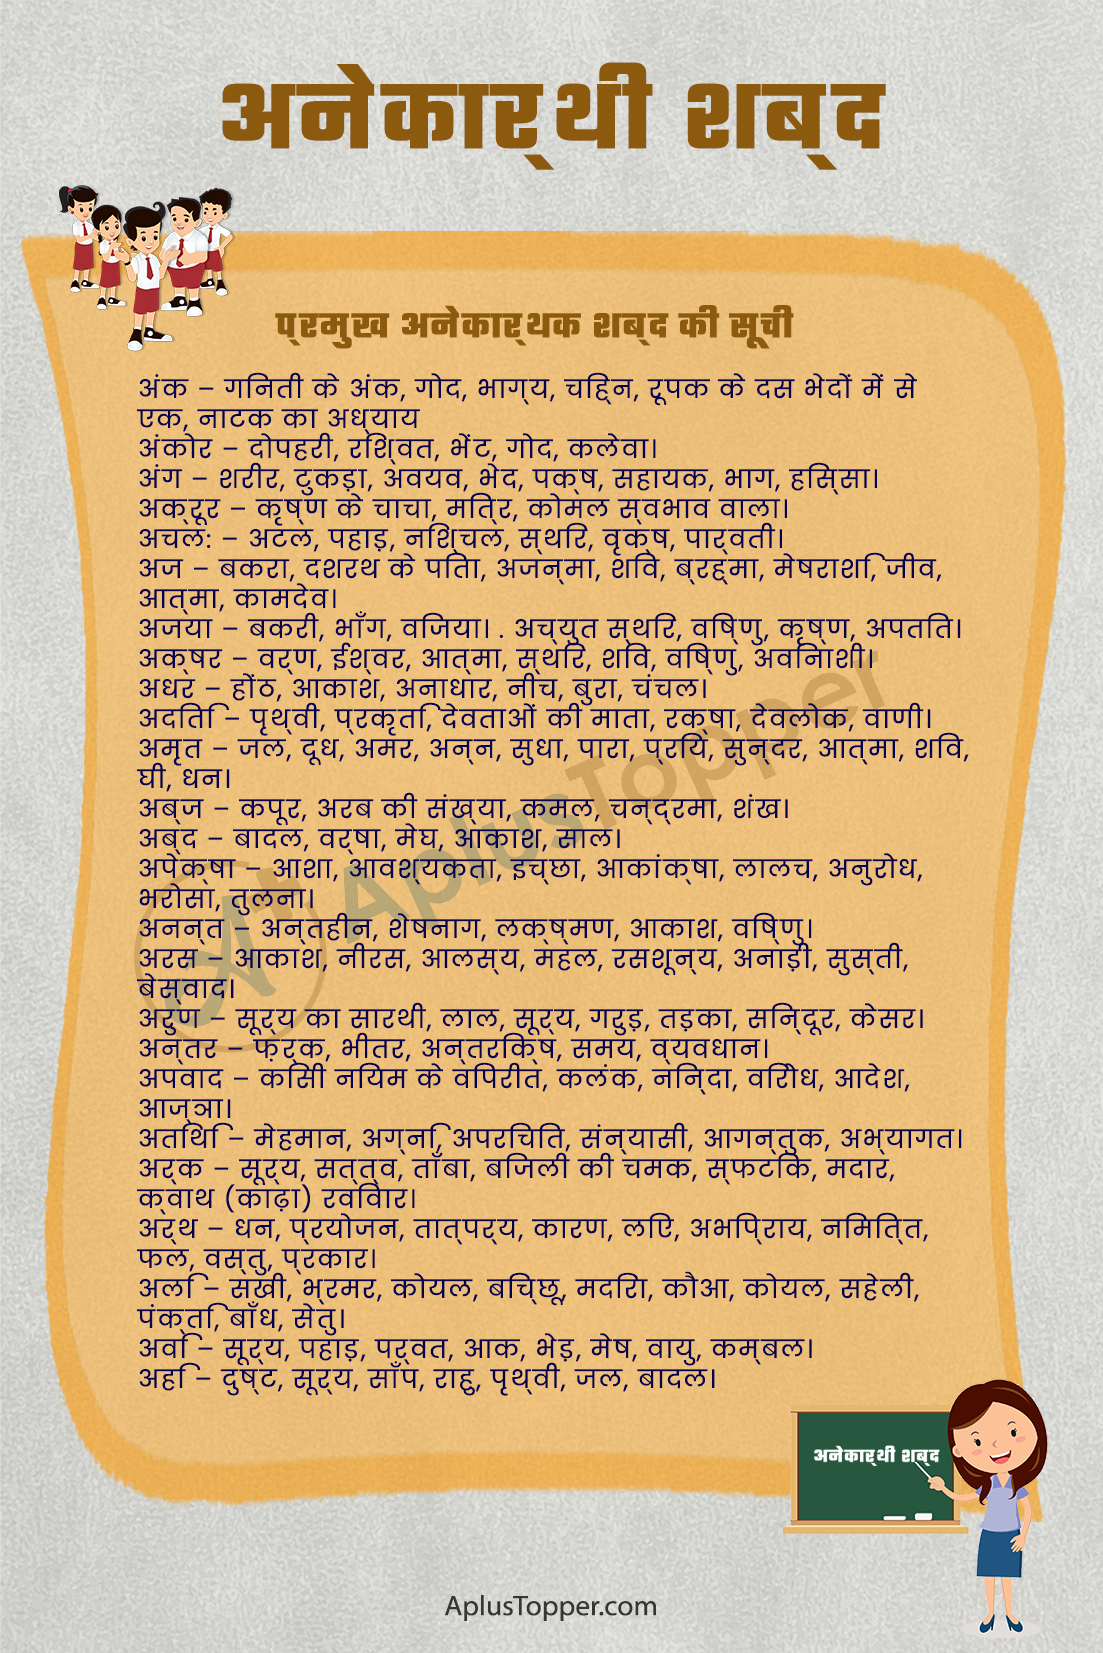 अनेकार्थी शब्द
प्रमुख अनेकार्थक शब्द की सूची
अंक – गिनती के अंक, गोद, भाग्य, चिह्न, रूपक के दस भेदों में से
एक, नाटक का अध्याय
अंकोर – दोपहरी, रिश्वत, भेंट, गोद, कलेवा।
अंग – शरीर, टुकड़ा, अवयव, भेद, पक्ष, सहायक, भाग, हिस्सा।
अक्रूर – कृष्ण के चाचा, मित्र, कोमल स्वभाव वाला।
अचल: – अटल, पहाड़, निश्चल, स्थिर, वृक्ष, पार्वती।
अज – बकरा, दशरथ के पिता, अजन्मा, शिव, ब्रह्मा, मेषराशि, जीव,
आत्मा, कामदेव।
अजया – बकरी, भाँग, विजया। . अच्युत स्थिर, विष्णु, कृष्ण, अपतित।
अक्षर – वर्ण, ईश्वर, आत्मा, स्थिर, शिव, विष्णु, अविनाशी।
अधर – होंठ, आकाश, अनाधार, नीच, बुरा, चंचल।
अदिति – पृथ्वी, प्रकृति, देवताओं की माता, रक्षा, देवलोक, वाणी।
अमृत – जल, दूध, अमर, अन्न, सुधा, पारा, प्रिय, सुन्दर, आत्मा, शिव,
घी, धन।
अब्ज – कपूर, अरब की संख्या, कमल, चन्द्रमा, शंख।
अब्द – बादल, वर्षा, मेघ, आकाश, साल।
अपेक्षा – आशा, आवश्यकता, इच्छा, आकांक्षा, लालच, अनुरोध,
भरोसा, तुलना।
अनन्त – अन्तहीन, शेषनाग, लक्ष्मण, आकाश, विष्णु।
अरस – आकाश, नीरस, आलस्य, महल, रसशून्य, अनाड़ी, सुस्ती,
बेस्वाद।
अरुण – सूर्य का सारथी, लाल, सूर्य, गरुड़, तड़का, सिन्दूर, केसर।
अन्तर – फ़र्क, भीतर, अन्तरिक्ष, समय, व्यवधान।
अपवाद – किसी नियम के विपरीत, कलंक, निन्दा, विरोध, आदेश,
आज्ञा।
अतिथि – मेहमान, अग्नि, अपरिचित, संन्यासी, आगन्तुक, अभ्यागत।
अर्क – सूर्य, सत्त्व, ताँबा, बिजली की चमक, स्फटिक, मदार,
क्वाथ (काढ़ा) रविवार।
अर्थ – धन, प्रयोजन, तात्पर्य, कारण, लिए, अभिप्राय, निमित्त,
फल, वस्तु, प्रकार।
अलि – सखी, भ्रमर, कोयल, बिच्छू, मदिरा, कौआ, कोयल, सहेली,
पंक्ति, बाँध, सेतु।
अवि – सूर्य, पहाड़, पर्वत, आक, भेड़, मेष, वायु, कम्बल।
अहि – दुष्ट, सूर्य, साँप, राहु, पृथ्वी, जल, बादल।
AplusTopper
अनेकार्थी शब्द
AplusTopper.com